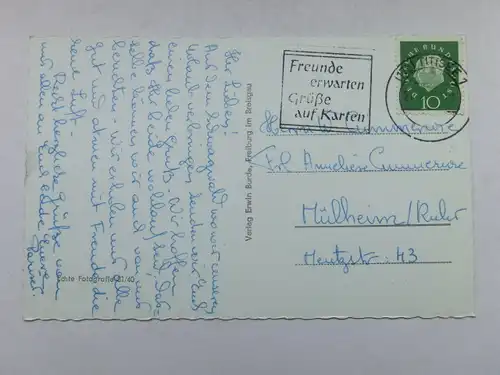 Ihr Lieben!
Aus dem Schwarzwald wo wir unseren
Urlaub verbringen, senden wir Euch
einen lieben Gruß. Wir hoffen
daß Ihr beide wohlauf seid, das-
selbe können wir auch von uns
berichten. Wir erholen uns alle
gut und atmen mit Freude die
reine Luft.
Recht herzliche Grüße von
uns allen an Euch beide
Echte Fotografie 61/40
Verlag Erwin Burda, Freiburg im Breisgau
Freunde
erwarten
Grüße
auf Karten
DEUTSCHE BUNDESPOST
10
Herrn W. Cummerwie
Frl. Anneliese Cummerwie
Mülheim/Ruhr
Mentzstr. 43